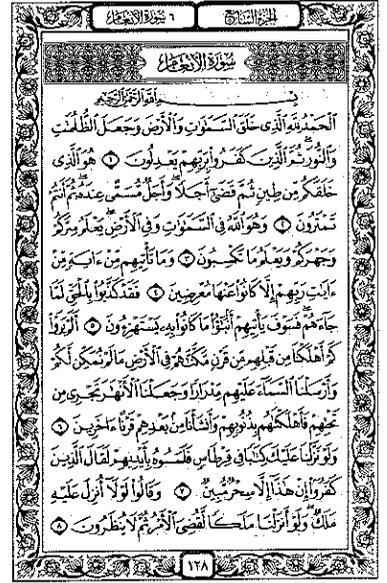 الجزء السابع ٦ سورة الأنعام
سورة الأنعام
بِسْمِ ٱللَّهِ ٱلرَّحْمَٰنِ ٱلرَّحِيمِ
ٱلْحَمْدُ لِلَّهِ ٱلَّذِى خَلَقَ ٱلسَّمَٰوَٰتِ وَٱلْأَرْضَ وَجَعَلَ ٱلظُّلُمَٰتِ
وَٱلنُّورَ ثُمَّ ٱلَّذِينَ كَفَرُوا۟ بِرَبِّهِمْ يَعْدِلُونَ ١ هُوَ ٱلَّذِى
خَلَقَكُم مِّن طِينٍ ثُمَّ قَضَىٰٓ أَجَلًا وَأَجَلٌ مُّسَمًّى عِندَهُۥ ثُمَّ أَنتُمْ
تَمْتَرُونَ ٢ وَهُوَ ٱللَّهُ فِى ٱلسَّمَٰوَٰتِ وَفِى ٱلْأَرْضِ يَعْلَمُ سِرَّكُمْ
وَجَهْرَكُمْ وَيَعْلَمُ مَا تَكْسِبُونَ ٣ وَمَا تَأْتِيهِم مِّنْ ءَايَةٍ مِّنْ
ءَايَٰتِ رَبِّهِمْ إِلَّا كَانُوا۟ عَنْهَا مُعْرِضِينَ ٤ فَقَدْ كَذَّبُوا۟ بِٱلْحَقِّ لَمَّا
جَآءَهُمْ فَسَوْفَ يَأْتِيهِمْ أَنۢبَٰٓؤُا۟ مَا كَانُوا۟ بِهِۦ يَسْتَهْزِءُونَ ٥ أَلَمْ يَرَوْا۟
كَمْ أَهْلَكْنَا مِن قَبْلِهِم مِّن قَرْنٍ مَّكَّنَّٰهُمْ فِى ٱلْأَرْضِ مَا لَمْ نُمَكِّن لَّكُمْ
وَأَرْسَلْنَا ٱلسَّمَآءَ عَلَيْهِم مِّدْرَارًا وَجَعَلْنَا ٱلْأَنْهَٰرَ تَجْرِى مِن
تَحْتِهِمْ فَأَهْلَكْنَٰهُم بِذُنُوبِهِمْ وَأَنشَأْنَا مِنۢ بَعْدِهِمْ قَرْنًا ءَاخَرِينَ ٦
وَلَوْ نَزَّلْنَا عَلَيْكَ كِتَٰبًا فِى قِرْطَاسٍ فَلَمَسُوهُ بِأَيْدِيهِمْ لَقَالَ ٱلَّذِينَ
كَفَرُوٓا۟ إِنْ هَٰذَآ إِلَّا سِحْرٌ مُّبِينٌ ٧ وَقَالُوا۟ لَوْلَآ أُنزِلَ عَلَيْهِ
مَلَكٌ وَلَوْ أَنزَلْنَا مَلَكًا لَّقُضِىَ ٱلْأَمْرُ ثُمَّ لَا يُنظَرُونَ ٨
١٢٨